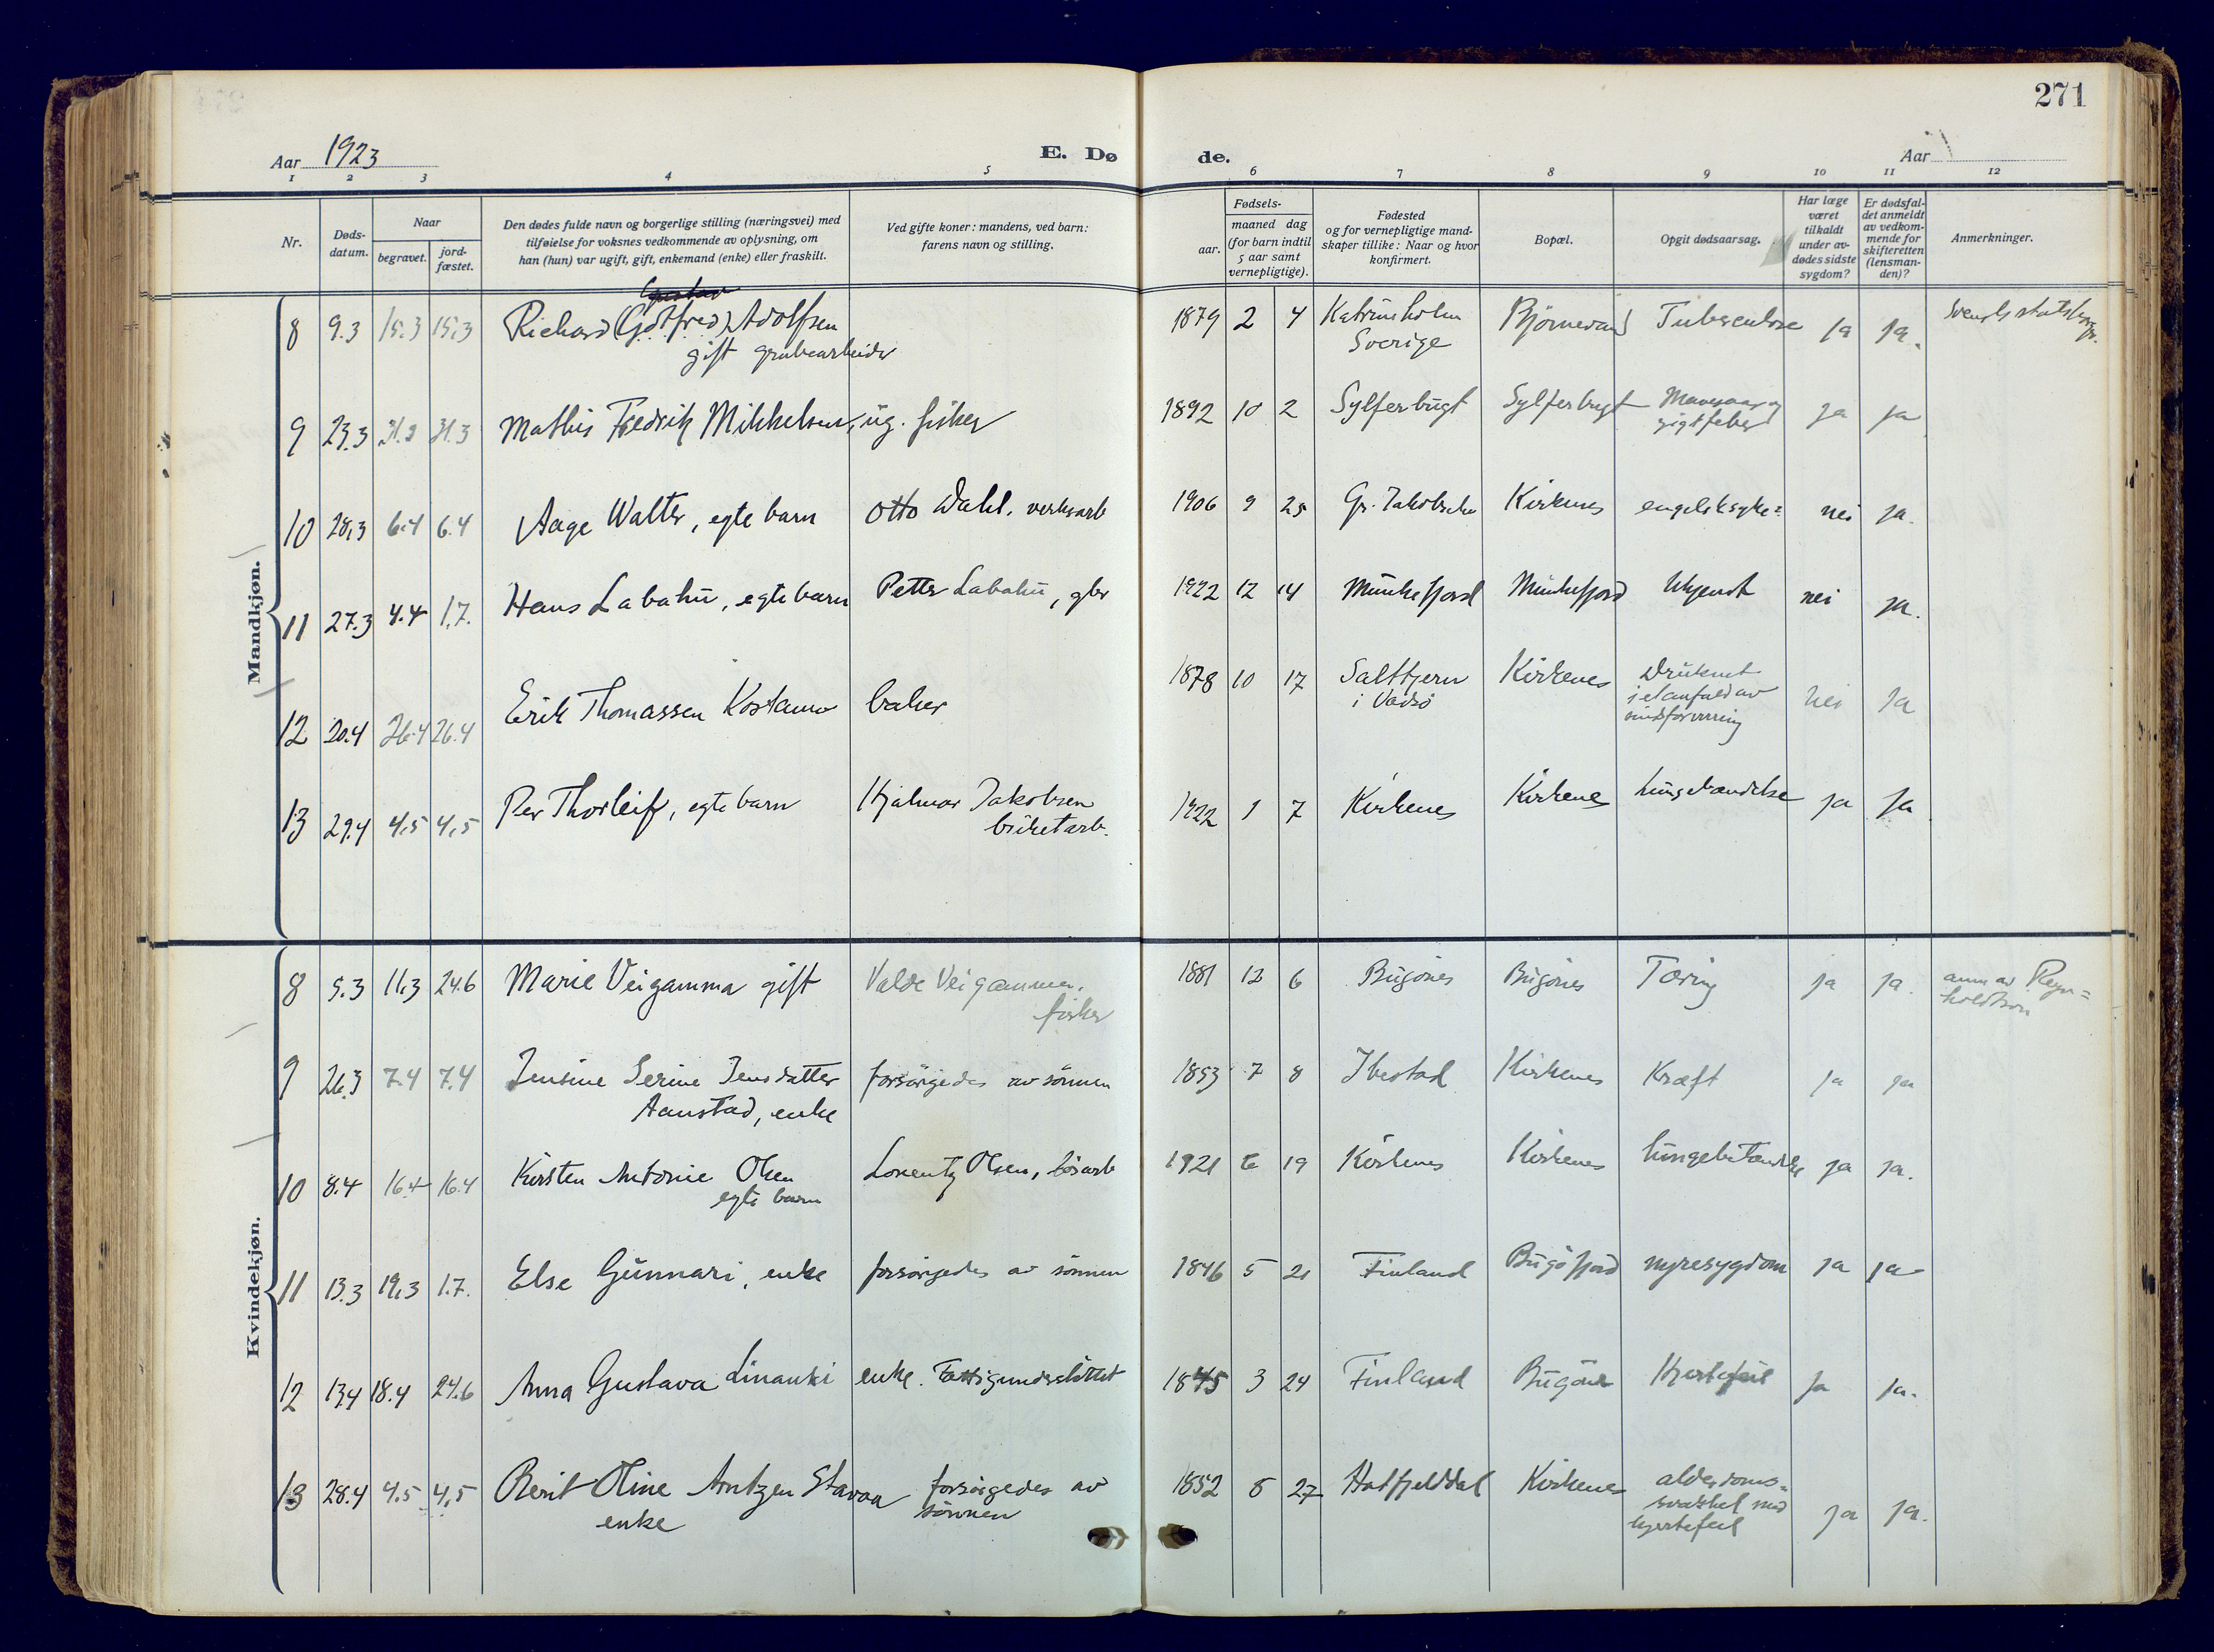 271
Aar 1923
E. Dø de.
Aar
1 2 3 4 5 6 7 8 9 10 11 12
Nr.
Døds-
datum.
Naar
begravet.
jord-
fæstet.
Den dødes fulde navn og borgerlige stilling (næringsvei) med
tilføielse for voksnes vedkommende av oplysning, om
han (hun) var ugift, gift, enkemand (enke) eller fraskilt.
Ved gifte koner: mandens, ved barn:
farens navn og stilling.
Fødsels-
aar.
maaned dag
(for barn indtil
5 aar samt
vernepligtige).
Fødested
og for vernepligtige mand-
skaper tillike: Naar og hvor
konfirmert.
Bopæl.
Opgit dødsaarsag.
Har læge
været
tilkaldt
under av-
dødes sidste
sygdom?
Er dødsfal-
det anmeldt
av vedkom-
mende for
skifteretten
(lensman-
den)?
Anmerkninger.
Mandkjøn.
8 9.3 15.3 15.3 Richard (Gotfred) Adolfsen 1879 2 4 Katrineholm Bjørnevand Tuberculose ja ja.
gift grubearbeider Sverige
9 23.3 31.3 31.3 Mathis Fredrik Mikkelsen, ug. fisker 1892 10 2 Sylferbugt Sylferbugt Mavesaar og ja ja
gigtfeber
10 28.3 6.4 6.4 Aage Walter, egte barn Otto Dahl. verksarb 1906 9 25 Kirkenes engelsksyke nei ja.
11 27.3 4.4 1.7. Hans Labahü, egte barn Petter Labahü, gbr 1922 12 14 Munkefjord Munkefjord Ukjendt nei ja.
12 20.4 26.4 26.4 Erik Thomassen Kostamo baker 1878 10 17 Saltfjern Kirkenes Druknet nei ja
i Vadsø i et anfald av
sindsforvirring
13 29.4 4.5 4.5 Per Thorleif, egte barn Hjalmar Jakobsen 1922 1 7 Kirkenes Kirkenes ja ja
briketarb.
Kvindekjøn.
8 5.3 11.3 24.6 Marie Veigamma gift Valde Veigamma. 1881 12 6 Bugönes Bugönes Tæring ja ja. anm av Reyn=
fisker holdtsen
9 26.3 7.4 7.4 Jensine Serine Jensdatter forsörgedes av sönnen 1853 7 8 Ibestad Kirkenes Kræft ja ja
Aanstad, enke
10 8.4 16.4 16.4 Kirsten Antonie Olsen Lorentz Olsen, lösarb 1921 6 19 Kirkenes Kirkenes lungebetændelse ja ja.
egte barn
11 13.3 19.3 1.7. Else Gunnari, enke forsörgedes av sönnen 1846 5 21 Finland Bugöfjord nyresygdom ja ja
12 13.4 18.4 24.6 Anna Gustava Linanki enke. Fattigunderstöttet 1845 3 24 Finland Bugönes Hjertefeil ja ja.
13 28.4 4.5 4.5 Berit Oline Arntzen Stavaa forsörgedes av 1852 8 27 Hatfjelddal Kirkenes alderdoms= ja ja.
enke sönnen svakhet med
hjertefeil